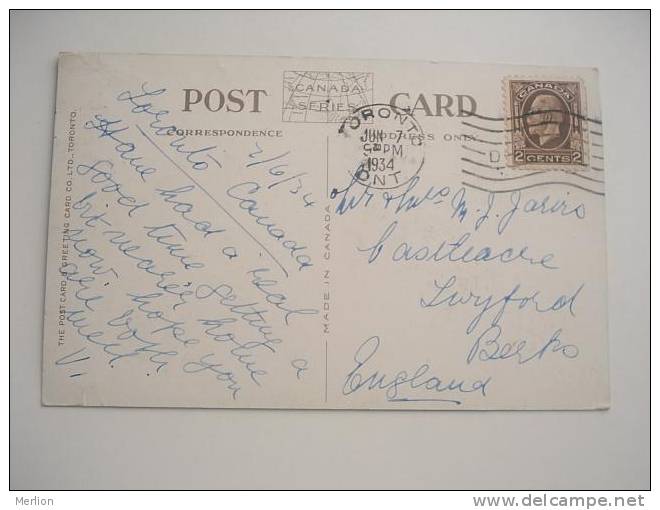 POST CARD
CANADA
SERIES
CORRESPONDENCE
ADDRESS ONLY
Toronto Canada
7/6/34
Have had a real
good time getting a
bit nearer home
now hope you
are both
well.
V.
THE POST CARD & GREETING CARD CO. LTD., TORONTO.
MADE IN CANADA
TORONTO
JUN 7
PM
1934
ONT
CANADA
2 CENTS 2
Mr & Mrs M. J. Jarvis
Castleacre
Twyford
Berks
England
Merlion
www.delcampe.net